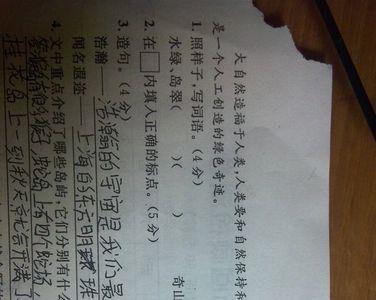 大自然造福于人类,人类要和自然保持和
是一个人工创造的绿色奇迹。
1. 照样子,写词语。(4分)
水绿岛翠( )( ) 奇山
2. 在□内填入正确的标点。(5分)
3. 造句。(4分)
浩瀚——浩瀚的宇宙是我们最
闻名遐迩——上海的东方明珠
4. 文中重点介绍了哪些岛屿,它们分别有什么
蛇岛上有四个蛇场
桂花岛上一到秋天就开满了